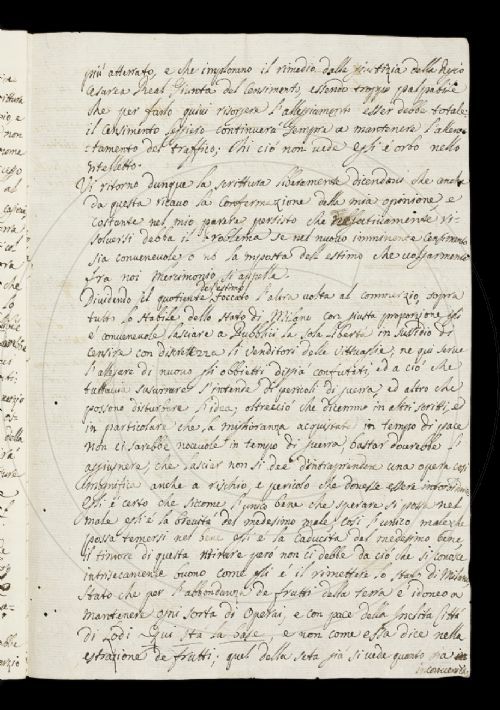 più atterrato, e che implorano il rimedio dalla Giustizia della Regio
Cesarea Real Giunta del Censimento, essendo troppo palpabile
che per farlo quivi risorgere l'allegiamento esser debbe totale;
il Censimento continuerà sempre a mantenere
del traffico; Chi ciò non vede egli è orbo nello
Intelletto.
Vi ritorno dunque la scrittura liberamente dicendovi che anche
da questa ricavo la confermazione della mia opinione, e
costante nel mio parere persisto che negativamente ri-
solversi debba il Problema se nel nuovo imminente Censimento
sia convenevole o no la imposta dell'estimo che volgarmente
fra noi Mercimonio si appella.
dell'estimo
Dividendo il quotiente toccato l'altra volta al commerzio sopra
tutto lo stabile dello Stato di Milano con giusta proporzione egli
è convenevole lasciare a Pubblici la sola libertà in sussidio di
Censire con destrezza i Venditori delle Vittuaglie, ne qui serve
l'allegare di nuovo gli obbietti di già confutati, ed a ciò che
tuttavia susurrare s'intende de' pericoli di guerra, ed altro che
possono disturbare l'idea, oltreciò che dicemmo in altri scritti, ed
in particolare che la minoranza acquistata in tempo di pace
non ci sarebbe nocevole in tempo di guerra, bastar dovrebbe l'
aggiugnere, che lasciar non si dee d'intraprendere una opera così
magnifica anche a rischio, e pericolo che dovesse essere
Egli è certo che siccome l'unico bene che sperare si possa nel
male egli è la brevità del medesimo male, così l'unico male che
possa temersi nel bene egli è la caducità del medesimo bene
il timore di questa però non ci debbe da ciò che si conosce
intrisecamente buono come egli è il rimettere lo Stato di Milano
Stato che per l'abbondanza de frutti della terra è idoneo a
mantenere ogni sorta di Operai, e con pace dalla Inclita Città
di Lodi Qui sta la base, e non come essa dice nella
estrazione de frutti; quel della seta già si vede quanto sia in